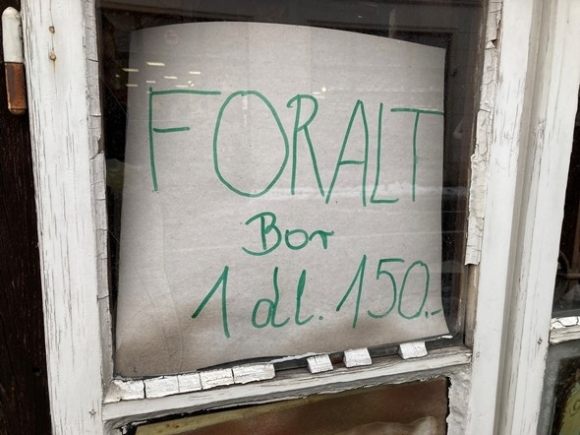 FORALT
Bor
1 dl. 150.-